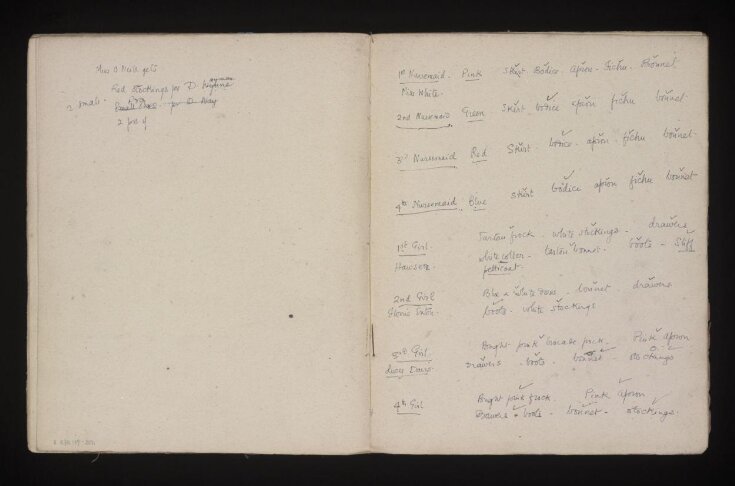 Miss O'Neill gets
Red Stockings for D.
2 small
2 prs of
1st Nursemaid. Pink Skirt Bodice - Apron - Fichu - Bonnet
Miss White.
2nd Nursemaid Green Skirt bodice apron fichu bonnet
3rd Nursemaid Red Skirt - bodice - apron - fichu - bonnet
4th Nursemaid Blue skirt bodice apron fichu bonnet
1st Girl. Tartan frock - white stockings - drawers
white collar - tartan bonnet - boots - Stiff
petticoat.
2nd Girl Blue & white bonnet - drawers
boots - white stockings
3rd Girl Bright pink brocade frock. Pink apron
Lucy drawers - boots - bonnet - stockings
4th Girl Bright pink frock. Pink apron
Drawers - boots - bonnet - stockings.